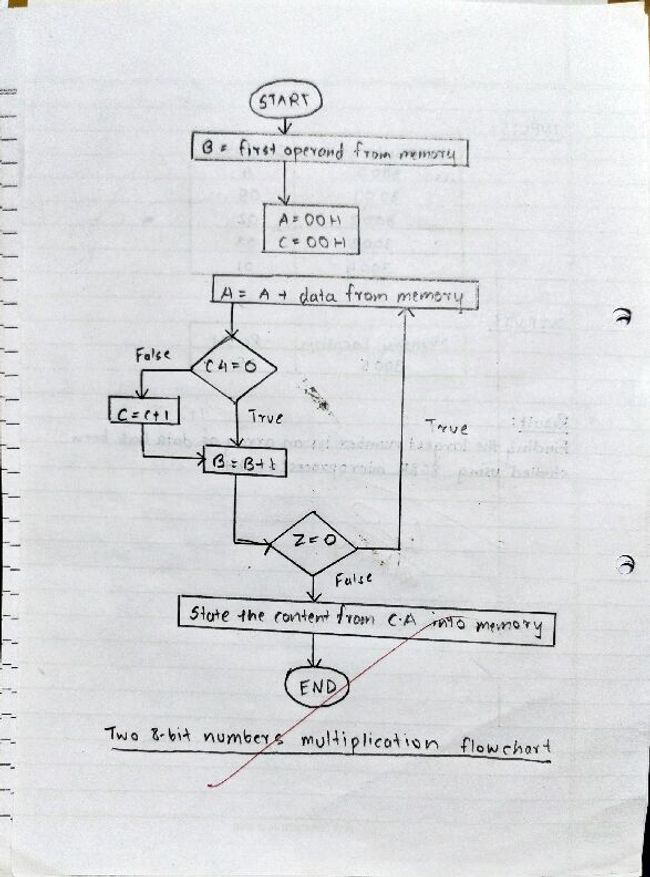 START
B = first operand from memory
A = 00H
C = 00H
A = A + data from memory
False
C4 = 0
C = C+1
True
True
B = B+1
Z = 0
False
State the content from C.A into memory
END
Two 8-bit numbers multiplication flowchart